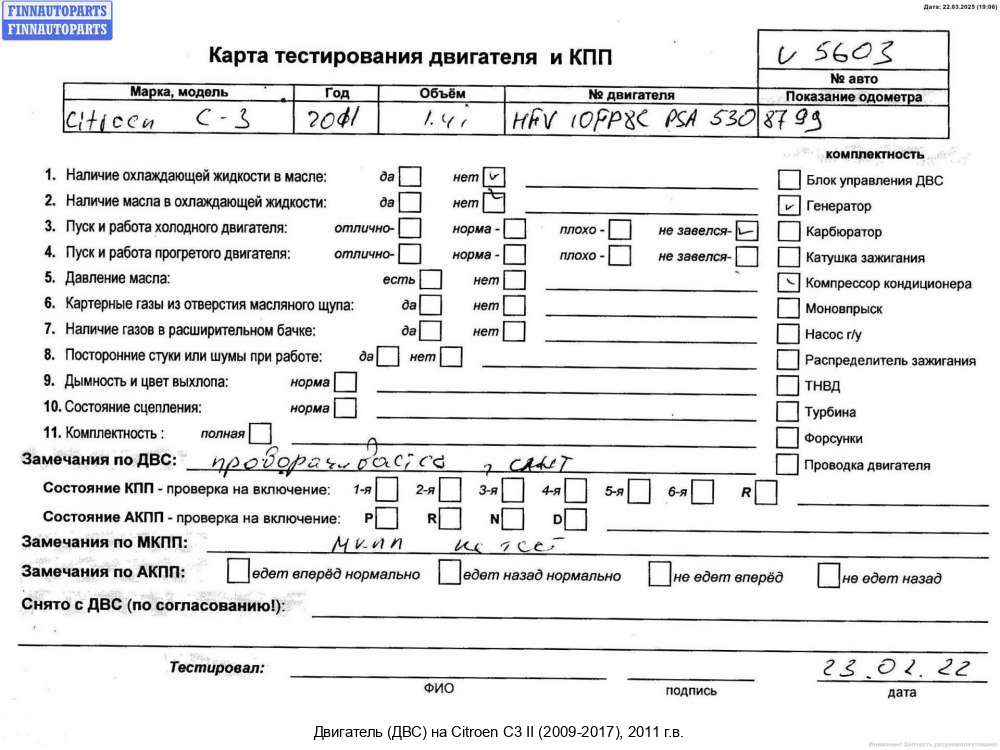 FINNAUTOPARTS
FINNAUTOPARTS
Дата: 22.03.2025 (19:06)
Карта тестирования двигателя и КПП
V 5603
№ авто
Марка, модель Год Объём № двигателя Показание одометра
Citroen C-3 2011 1.4i HFV 10FP8C PSA 530 8799
комплектность
1. Наличие охлаждающей жидкости в масле: да нет
Блок управления ДВС
2. Наличие масла в охлаждающей жидкости: да нет
Генератор
3. Пуск и работа холодного двигателя: отлично- норма - плохо - не завелся-
Карбюратор
4. Пуск и работа прогретого двигателя: отлично- норма - плохо - не завелся-
Катушка зажигания
5. Давление масла: есть нет
Компрессор кондиционера
6. Картерные газы из отверстия масляного щупа: да нет
Моновпрыск
7. Наличие газов в расширительном бачке: да нет
Насос г/у
8. Посторонние стуки или шумы при работе: да нет
Распределитель зажигания
9. Дымность и цвет выхлопа: норма
ТНВД
10. Состояние сцепления: норма
Турбина
11. Комплектность : полная
Форсунки
Замечания по ДВС: проворачивается
Проводка двигателя
Состояние КПП - проверка на включение: 1-я 2-я 3-я 4-я 5-я 6-я R
Состояние АКПП - проверка на включение: P R N D
Замечания по МКПП: МКПП не тест
Замечания по АКПП: едет вперёд нормально едет назад нормально не едет вперёд не едет назад
Снято с ДВС (по согласованию!):
Тестировал: 23.02.22
ФИО подпись дата
Двигатель (ДВС) на Citroen C3 II (2009-2017), 2011 г.в.
Внимание! Запчасть разукомплектована!